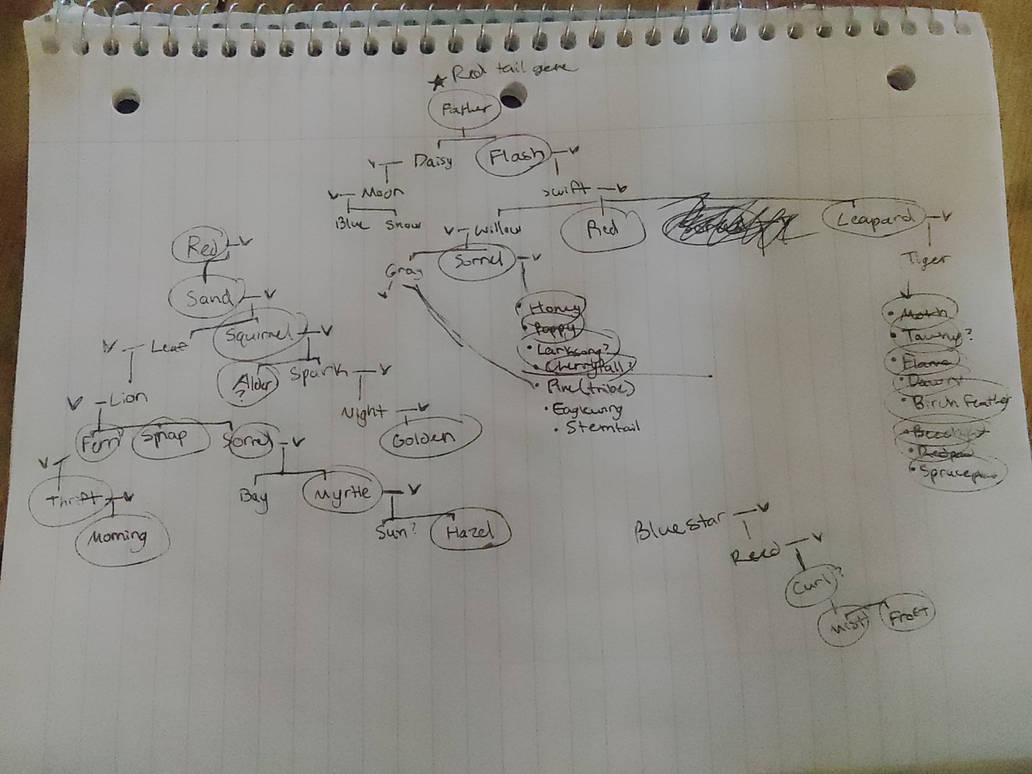 ★ Red tail gene
Father
v Daisy Flash v
v Moon Swift v
Blue Snow
v Willow Red Leapard v
Gray Sorrel v
v
Tiger
Red v
Sand v
v Leaf Squirrel v
Alder ? Spark v
v Lion
Night v
Golden
Fern Snap Sorrel v
v
Thrift v
Bay Myrtle v
Morning
Sun? Hazel
• Honey
• Poppy
• Larksong?
• Cherryfall?
• Pine (tribe)
• Eaglewing
• Stemtail
• Tawny?
• Flame
• Dawn
• Birch Feather
• Sprucepaw
Bluestar v
Reed v
Curl?
Mist Frost